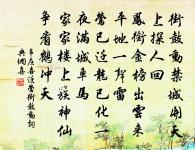 街鼓動禁城開天
上探人回
鳳銜金榜出雲來
平地一聲雷
鶯已遷龍已化一
夜滿城車馬
家家樓上簇神仙
爭看鶴沖天
韋莊喜遷鶯街鼓動詞